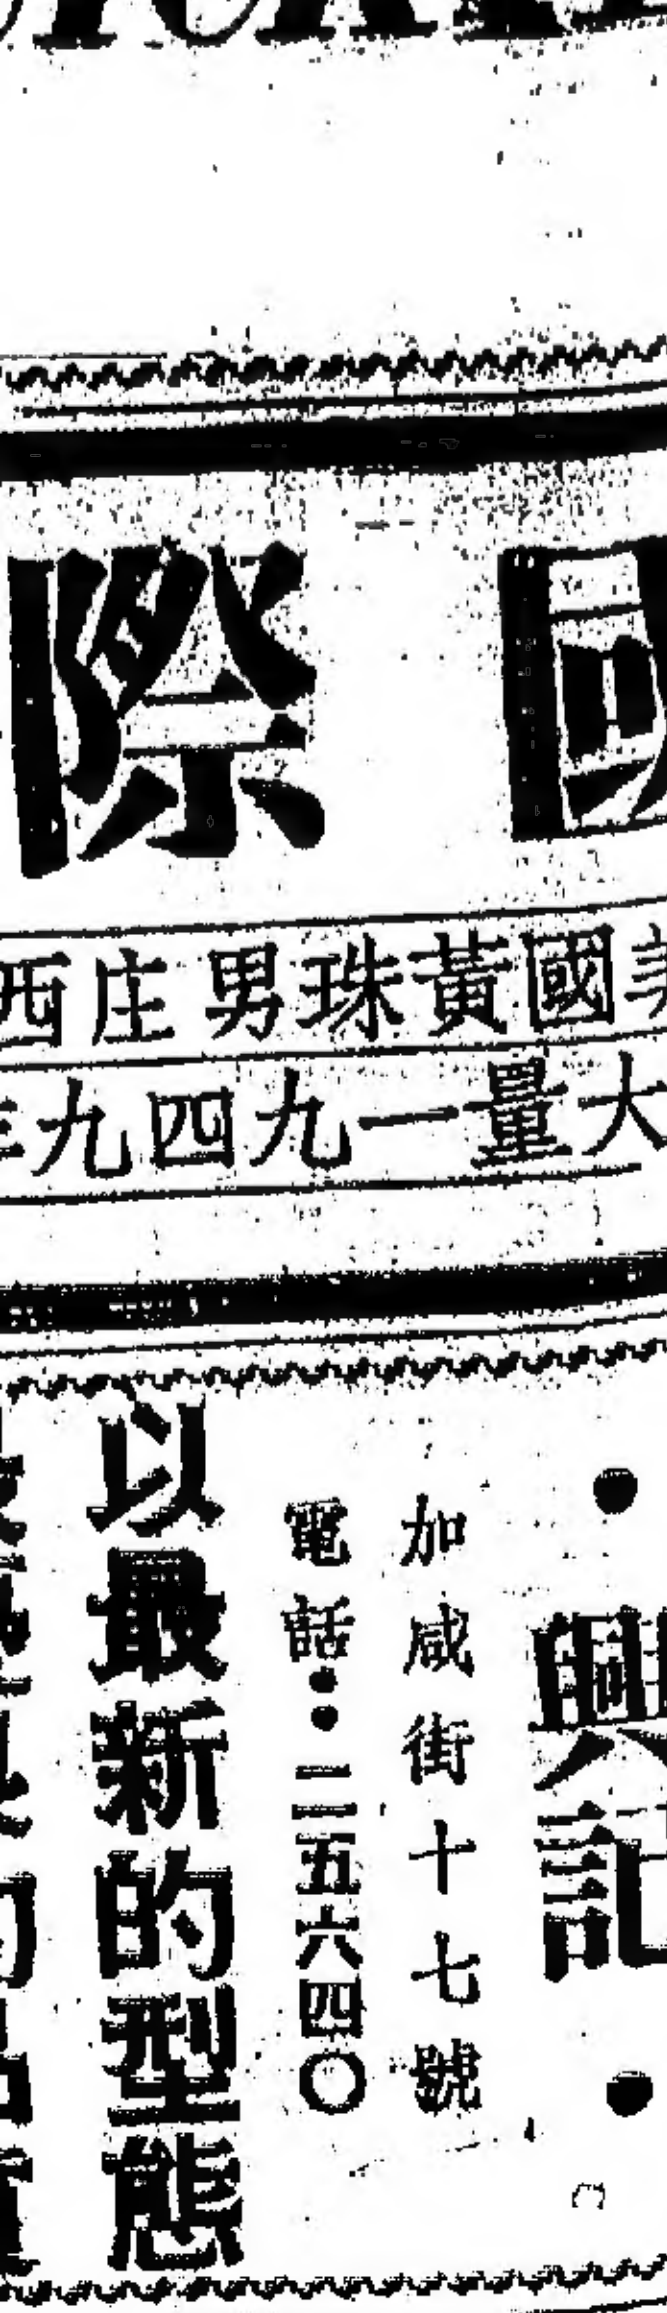 國際
美國黃珠男庄西
大量一九四九年
興記
加咸街十七號
電話：二五六四〇
以最新的型態